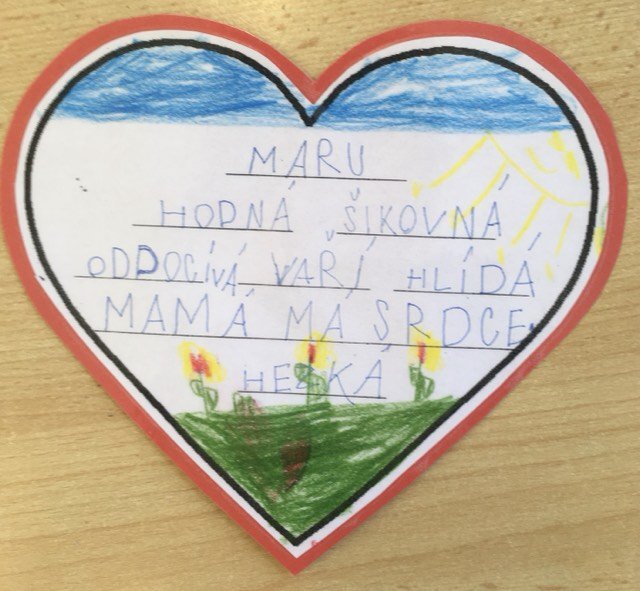 MARU
HODNÁ ŠIKOVNÁ
ODPOČÍVÁ VAŘÍ HLÍDÁ
MAMÁ MÁ SRDCE
HEZKÁ